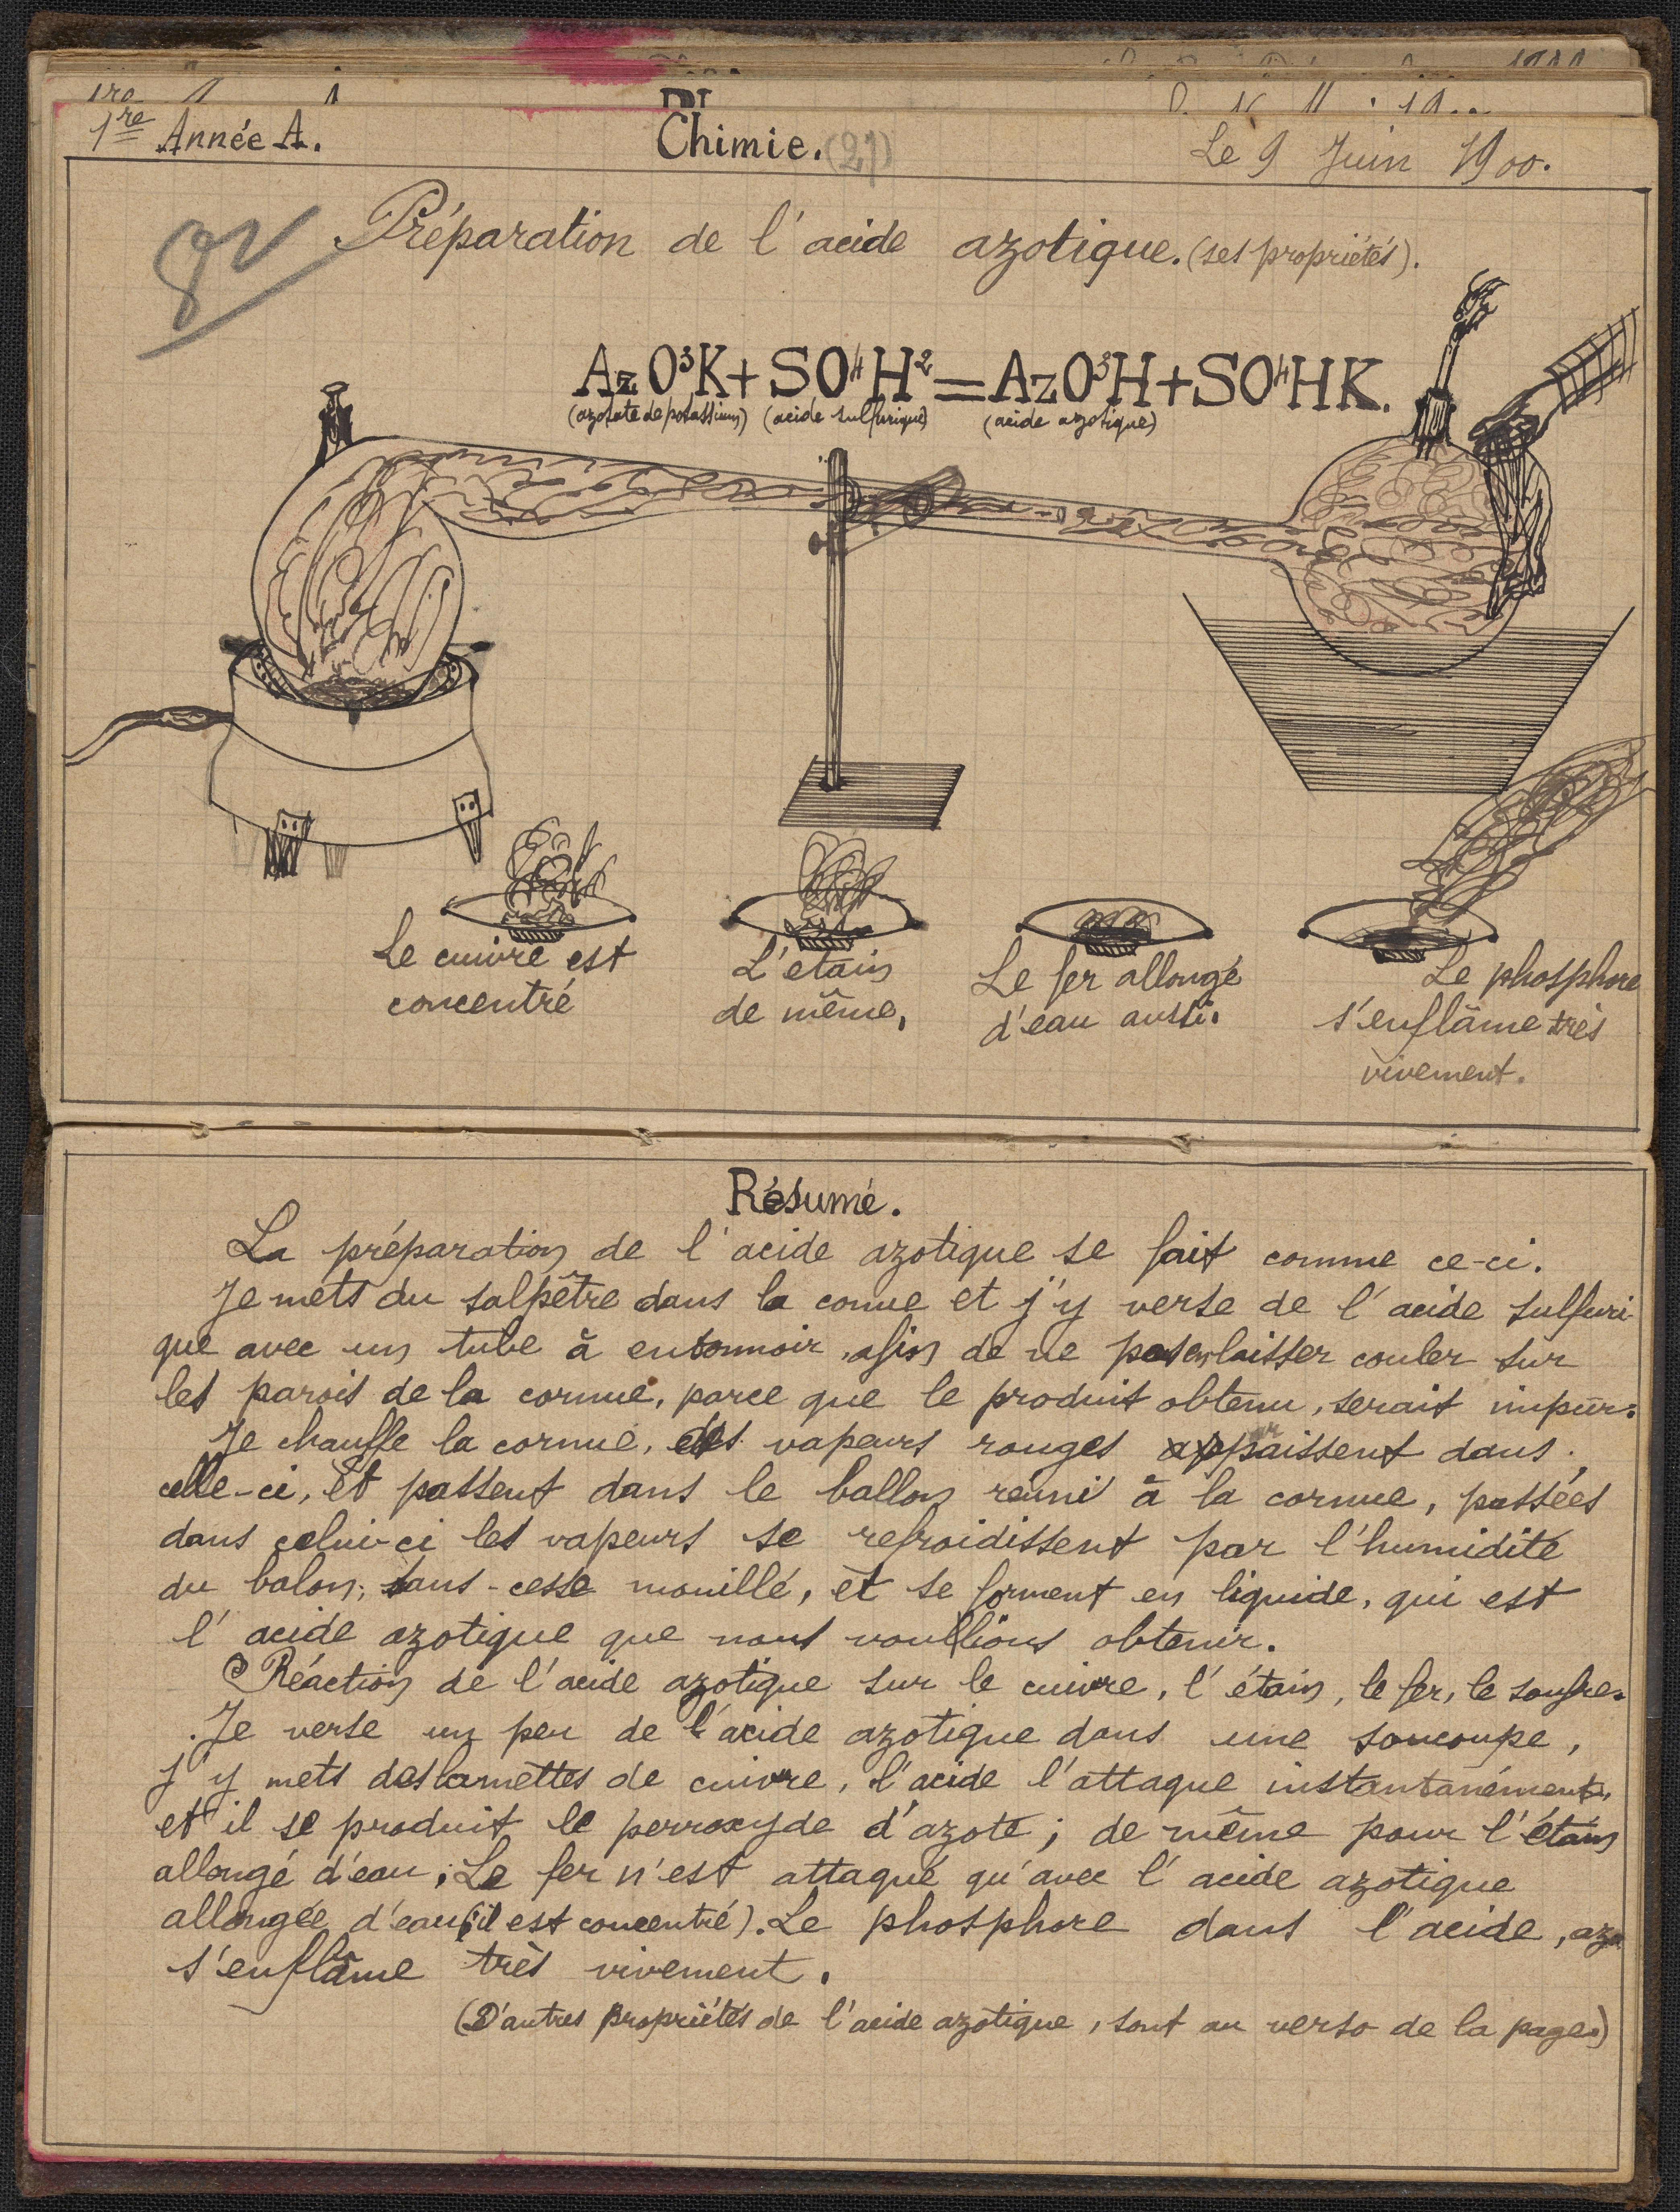 1re Année A.
Chimie. (21)
Le 9 Juin 1900.
Préparation de l'acide azotique. (ses propriétés).
AzO³K + SO⁴H² = AzO³H + SO⁴HK.
(azotate de potassium) (acide sulfurique) (acide azotique)
Le cuivre est
concentré
L'etain
de même,
Le fer allongé
d'eau aussi.
Le phosphore
s'enflâme très
vivement.
Résumé.
La préparation de l'acide azotique se fait comme ce-ci.
Je mets du salpêtre dans la cornue et j'y verse de l'acide sulfuri
que avec un tube à entonnoir, afin de ne pas en laisser couler sur
les parois de la cornue, parce que le produit obtenu, serait impur.
Je chauffe la cornue, des vapeurs rouges appaissent dans
celle-ci, et passent dans le ballon réuni à la cornue, passées
dans celui-ci les vapeurs se refroidissent par l'humidité
du balon, sans-cesse mouillé, et se forment en liquide, qui est
l'acide azotique que nous voullions obtenir.
Réaction de l'acide azotique sur le cuivre, l'étain, le fer, le soufre.
Je verse un peu de l'acide azotique dans une soucoupe,
j'y mets des lamettes de cuivre, l'acide l'attaque instantanément,
et il se produit le perroxyde d'azote ; de même pour l'étain
allongé d'eau ; Le fer n'est attaqué qu'avec l'acide azotique
allongée d'eau (il est concentré). Le phosphore dans l'acide, azo
s'enflâme très vivement.
(D'autres propriétés de l'acide azotique, sont au verso de la page.)